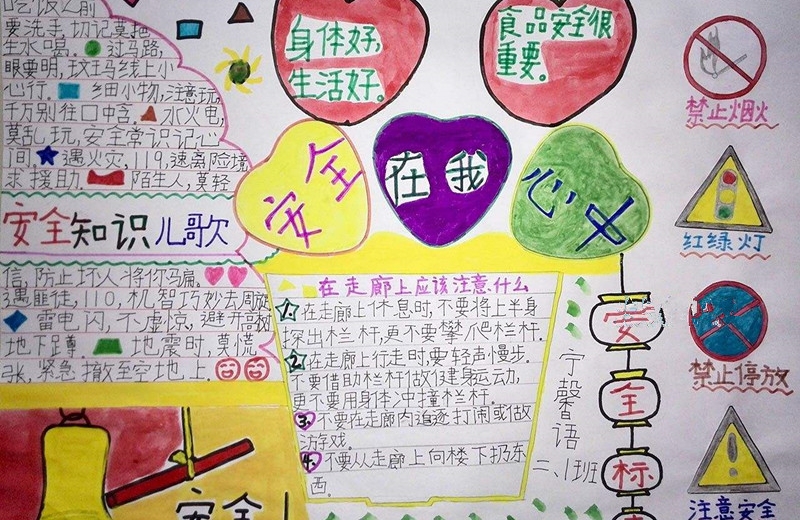 吃饭之前
要洗手,切记莫把
生水喝。过马路,
眼要明,斑马线上小
心行。细小物,注意玩,
千万别往口中含。水火电,
莫乱玩,安全常识记心
间。遇火灾,119,速离险境
求援助。陌生人,莫轻
安全知识儿歌
信,防止坏人将你骗。
遇匪徒,110,机智巧妙去周旋
雷电闪,不虚惊,避开高树
地下蹲。地震时,莫慌
张,紧急撤至空地上。
安全
身体好,
生活好。
食品安全很
重要。
安全在我心中
在走廊上应该注意什么
1.在走廊上休息时,不要将上半身
探出栏杆,更不要攀爬栏杆.
2.在走廊上行走时,要轻声慢步.
不要借助栏杆做健身运动,
更不要用身体冲撞栏杆.
3.不要在走廊内追逐打闹或做
游戏.
4.不要从走廊上向楼下扔东
西.
宁馨语
二、1班
安
全
标
禁止烟火
红绿灯
禁止停放
注意安全